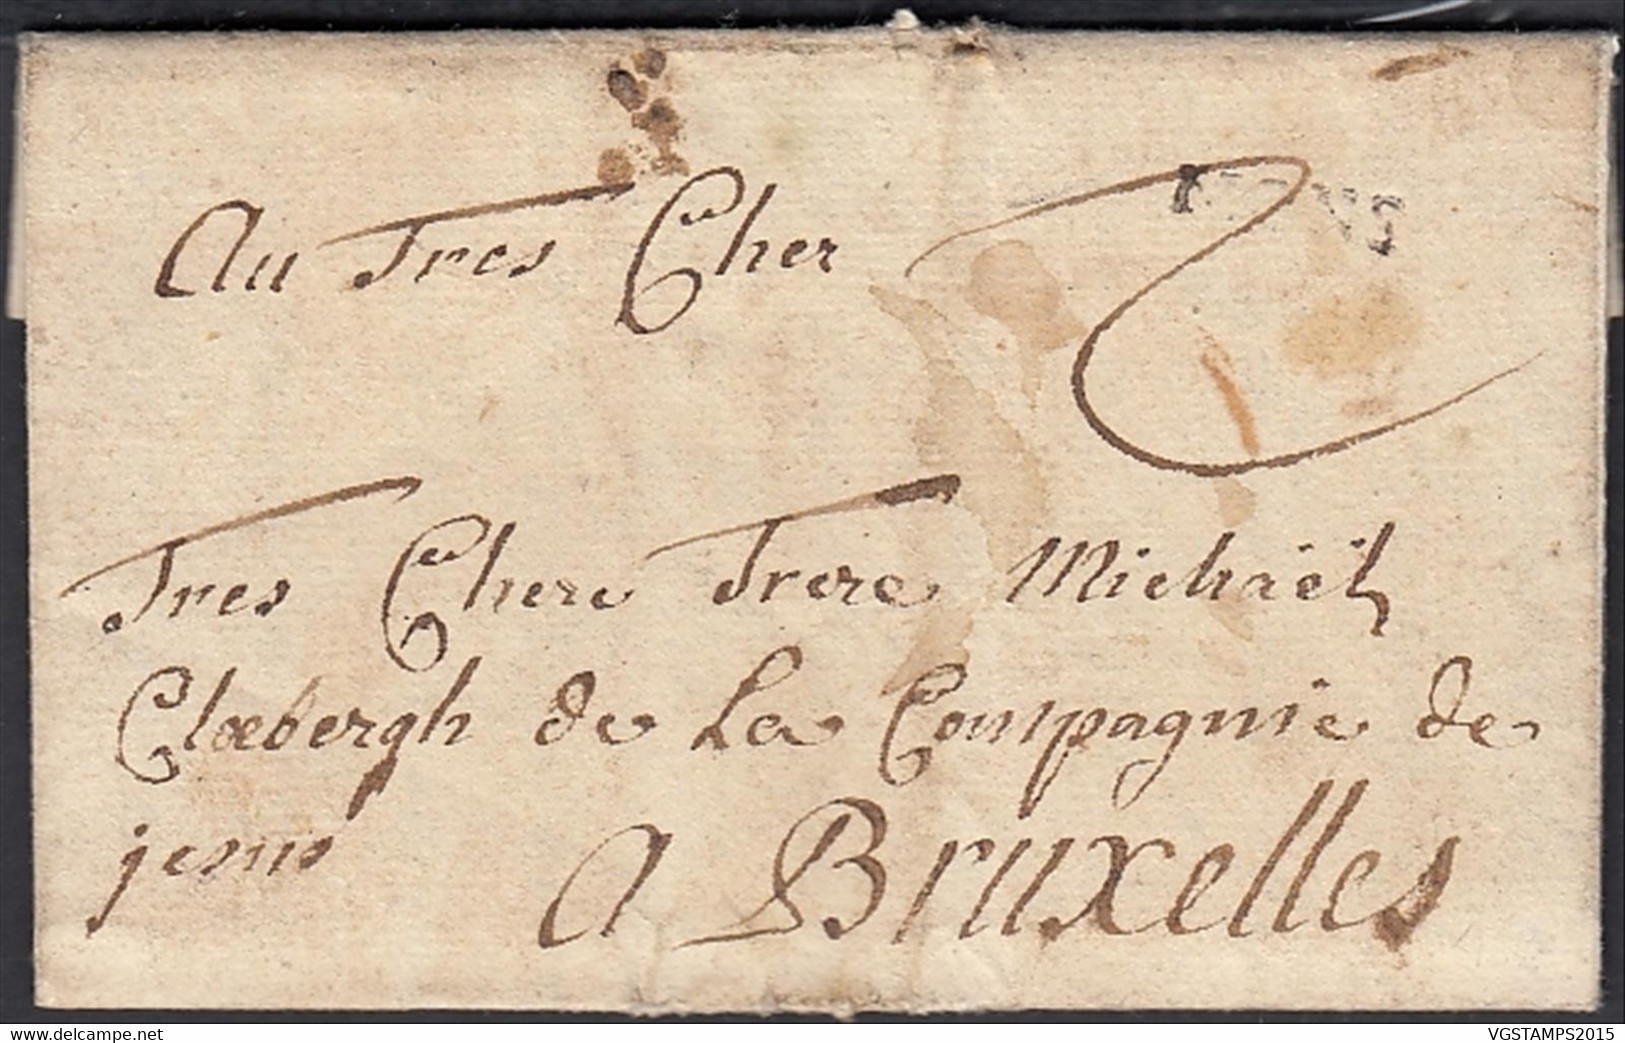 Au Tres Cher
Tres Chere Frere Michäël
Cloebergh de La Compagnie de
jesus
a Bruxelles
delcampe.net
VGSTAMPS2015